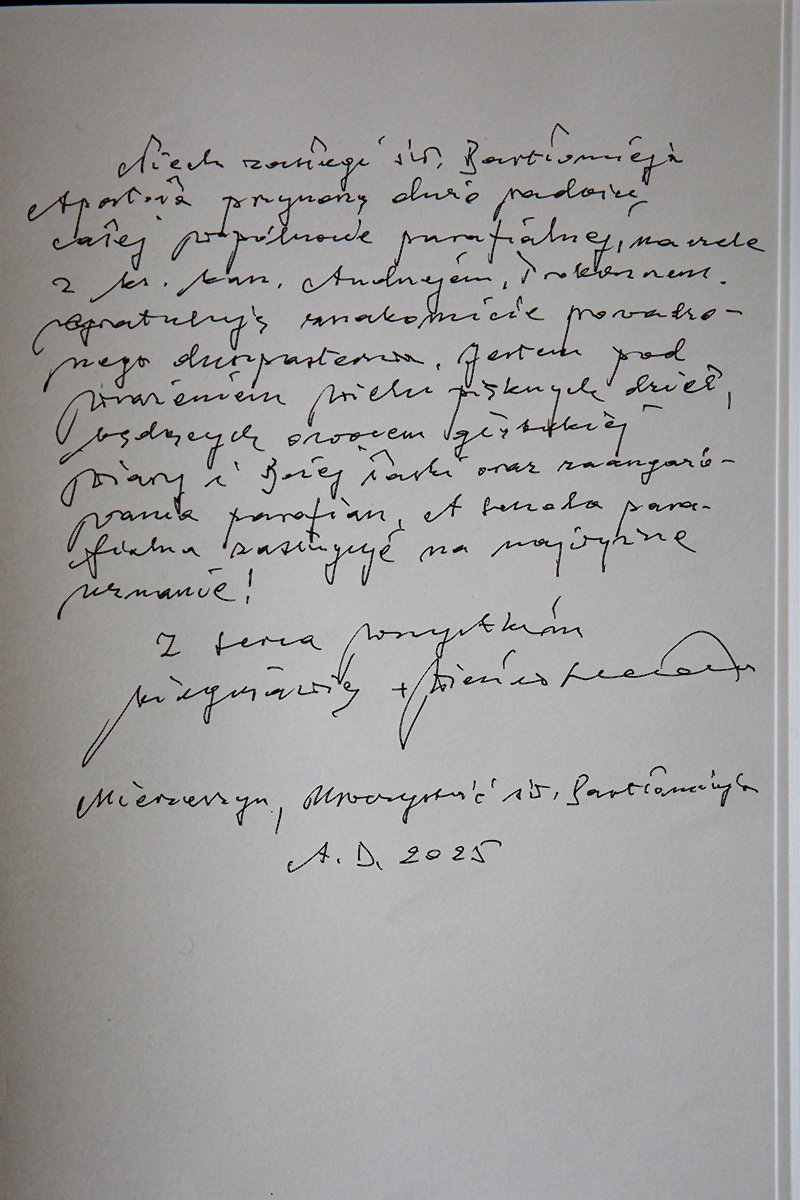 Niech zasługi św. Bartłomieja
Apostoła przynoszą dużo radości
całej wspólnocie parafialnej, na czele
z ks. kan. Andrzejem, Proboszczem.
gratuluję znakomicie prowadzo-
nego duszpasterstwa. Jestem pod
wrażeniem wielu pięknych dzieł,
będących owocem głębokiej
wiary i Bożej łaski oraz zaangażo-
wania parafian. A szkoła para-
fialna zasługuje na najwyższe
uznanie!
Z serca wszystkim
+ Wiesław
Mierzeszyn, Uroczystość św. Bartłomieja
A. D. 2025